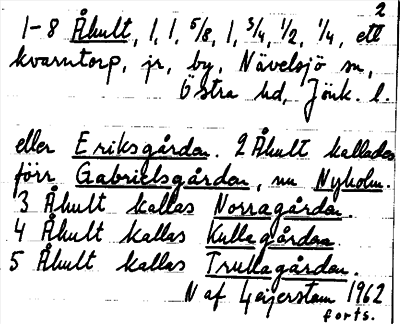 2
1-8 Åhult, 1, 1, 5/8, 1, 3/4, 1/2, 1/4, ett
kvarntorp, jr, by, Nävelsjö sn,
Östra hd, Jönk. l.
eller Eriksgården. 2 Åhult kallades
förr Gabrielsgården, nu Nyholm.
3 Åhult kallas Norragården.
4 Åhult kallas Kullagården.
5 Åhult kallas Trullagården.
N af Geijerstam 1962
forts.